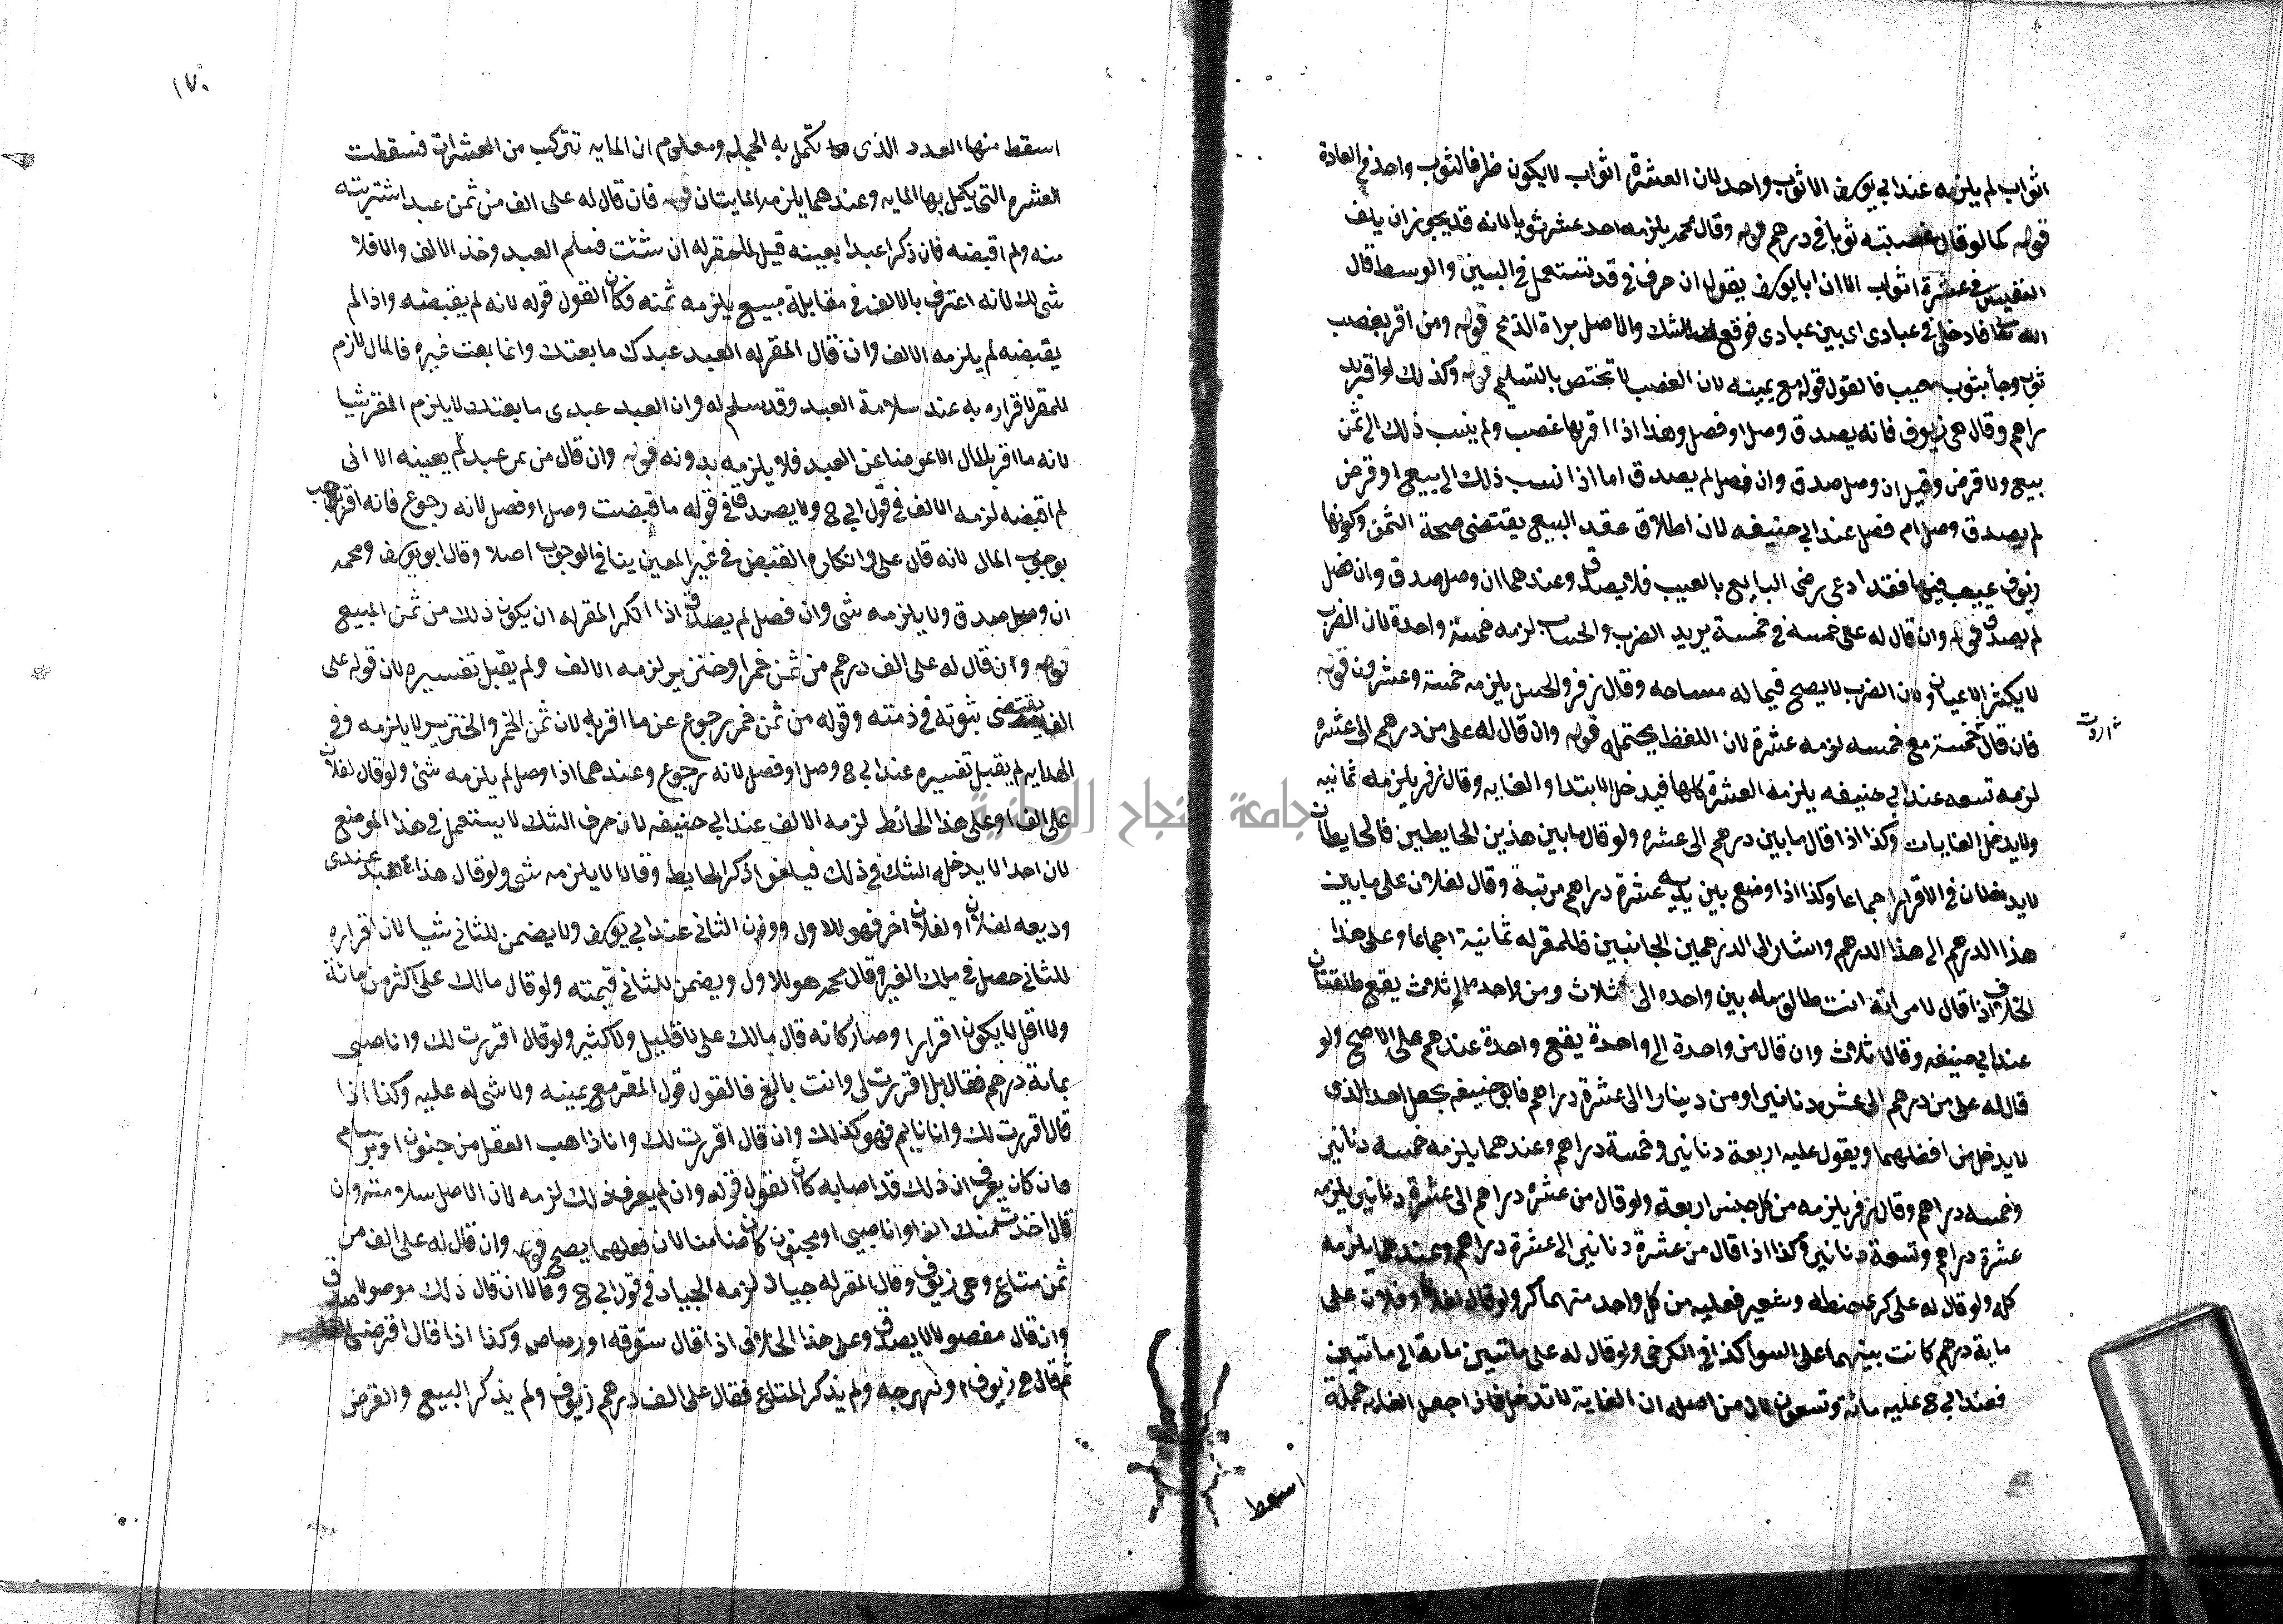 اثواب لم يلزمه عند ابي يوسف الا ثوب واحد لان العشرة اثواب لا يكون ظرفا لثوب واحد في العادة
قوله كما لو قال غصبته ثوبا في درهم قوله وقال محمد يلزمه احد عشر ثوبا لانه قد يجوز ان يلف
النفيس في عشرة اثواب الا ان ابا يوسف يقول ان حرف في قد تستعمل في البين والوسط قال
الله تعا فادخلي في عبادي اي بين عبادي فوقع الشك والاصل براة الذمم قوله ومن اقر بغصب
ثوب وجأ بثوب معيب فالقول قوله مع يمينه لان الغصب لا تختص بالتسليم قوله وكذلك لو اقر بد
راهم وقال هي زيوف فانه يصدق وصل او فصل وهذا اذا اقر بها غصب ولم ينسب ذلك الى ثمن
بيع ولا قرض وقيل ان وصل صدق وان فصل لم يصدق اما اذا نسب ذلك الى بيع او قرض
لم يصدق وصل ام فصل عند ابي حنيفه لان اطلاق عقد البيع يقتضي صحة الثمن وكونها
زيوف عيب فيها فقد ادعى رضى البايع بالعيب فلا يصدق وعندهما ان وصل صدق وان فصل
لم يصدق قوله وان قال له علي خمسه في خمسة يريد الضرب والحساب لزمه خمسة واحدة لان الضرب
لا يكثر الاعيان ولان الضرب لا يصح فيما له مساحه وقال زفر والحسن يلزمه خمسة وعشرون قوله
فان قال خمسة مع خمسه لزمه عشرة لان اللفظ يحتمله قوله وان قال له علي من درهم الى عشره
لزمه تسعه عند ابي حنيفه يلزمه العشرة كلها فيدخل الابتدا والغايه وقال زفر يلزمه ثمانيه
ولا يدخل الغايات وكذا اذا قال ما بين درهم الى عشره ولو قال ما بين هذين الحايطين فالحايطان
لا يدخلان في الاقرار اجماعا وكذا اذا وضع بين يديه عشرة دراهم مرتبة وقال لفلان علي ما بين
هذا الدرهم الى هذا الدرهم واشار الى الدرهمين الجانبين فللمقر له ثمانية اجماعا وعلى هذا
الخلاف اذا قال لامراته انت طالق ما بين واحده الى ثلاث ومن واحده الى ثلاث يقع طلقتان
عند ابي حنيفه وقالا ثلاث وان قال من واحدة الى واحدة يقع واحدة عندهم على الاصح ولو
قال له علي من درهم الى عشره دنانير او من دينار الى عشرة دراهم فابو حنيفه يجعل الحد الذي
لا يدخل من افضلهما ويقول عليه اربعة دنانير وخمسة دراهم وعندهما يلزمه خمسه دنانير
وخمسه دراهم وقال زفر يلزمه من كل جنس اربعة ولو قال من عشره دراهم الى عشرة دنانير يلزمه
عشرة دراهم وتسعة دنانير وكذا اذا قال من عشرة دنانير الى عشرة دراهم وعندهما يلزمه
كله ولو قال له علي كر حنطه وشعير فعليه من كل واحد منهما كر ولو قال لفلان وفلان علي
ماية درهم كانت بينهما على السوا كذا في الكرخي ولو قال له علي ماتين ماية الى ماتين
فعند ابي ح عليه مائة وتسعون لان من اصله ان الغاية لا تدخل فاذا جعل الغايه جملة
اسقط
١٧٠
اسقط منها العدد الذي تكمل به الجمله ومعلوم ان المايه تتركب من العشرات فسقطت
العشره التي يكمل بها المايه وعندهما يلزمه المايتان قوله فان قال له علي الف من ثمن عبد اشتريته
منه ولم اقبضه فان ذكر اعبدا بعينه قيل للمقر له ان شئت فسلم العبد وخذ الالف والا فلا
شي لك لانه اعترف بالالف في مقابلة مبيع يلزمه ثمنه فكان القول قوله لانه لم يقبضه واذا لم
يقبضه لم يلزمه الالف وان قال المقر له العبد عبدك ما بعتك وانما بعت غيره فالمال لازم
للمقر لاقراره به عند سلامة العبد وقد سلم له وان العبد عبدي ما بعتك لا يلزم المقر شيا
لانه ما اقر بالمال الا عوضا عن العبد فلا يلزمه بدونه قوله وان قال من ثمن عبد لم يعينه الا اني
لم اقبضه لزمه الالف في قول ابي ح ولا يصدق في قوله ما قبضت وصل او فصل لانه رجوع فانه اقر
بوجوب المال لانه قال علي وانكاره القبض في غير المعين ينافي الوجوب اصلا وقال ابو يوسف ومحمد
ان وصل صدق ولا يلزمه شي وان فصل لم يصدق اذا انكر المقر له ان يكون ذلك من ثمن المبيع
قوله وان قال له علي الف درهم من ثمن خمر او خنزير لزمه الالف ولم يقبل تفسيره لان قوله علي
الف يقتضي ثبوته في ذمته وقوله من ثمن خمر رجوع عن ما اقر به لان ثمن الخمر والخنزير لا يلزمه وفي
الهدايه لم يقبل تفسيره عند ابي ح وصل او فصل لانه رجوع وعندهما اذا وصل لم يلزمه شي ولو قال لفلان
علي الف او على هذا الحائط لزمه الالف عند ابي حنيفه لان حرف الشك لا يستعمل في هذا الموضع
لان احدا لا يدخله الشك في ذلك فيلغوا ذكر الحايط وقالا لا يلزمه شي ولو قال هذا العبد عندي
وديعه لفلان او لفلان اخر فهو للاول دون الثاني عند ابي يوسف ولا يضمن للثاني شيا لان اقراره
للثاني حصل في ملك الغير وقال محمد هو للاول ويضمن للثاني قيمته ولو قال مالك علي اكثر من مائة
ولا اقل لا يكون اقرارا وصار كانه قال مالك علي لا قليل ولا كثير ولو قال اقررت لك وانا صبي
بماية درهم فقال بل اقررت لي وانت بالغ فالقول قول المقر مع يمينه ولا شي له عليه وكذا اذا
قال اقررت لك وانا نايم فهو كذلك وان قال اقررت لك وانا ذاهب العقل من جنون او برسام
فان كان يعرف ان ذلك قد اصابه كان القول قوله وان لم يعرف ذلك لزمه لان الاصل سلامته وان
قال اخذت منك الفا وانا صبي او مجنون كان ضامنا لان فعلهما يصح قوله وان قال له علي الف من
ثمن متاع وهي زيوف وقال المقر له جياد لزمه الجياد في قول ابي ح وقالا ان قال ذلك موصولا صدق
وان قال مفصولا لا يصدق وعلى هذا الخلاف اذا قال ستوقه او رصاص وكذا اذا قال اقرضني
ثم قال هي زيوف او نبهرجه ولم يذكر المتاع فقال علي الف درهم زيوف ولم يذكر البيع والقرض
جامعة النجاح الوطنية